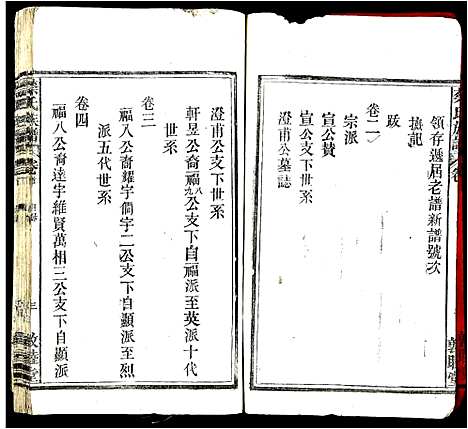 領存遜居老譜新譜號次
摭記
跋
卷二
宗派
宣公贊
宣公支下世系
澄甫公墓誌
澄甫公支下世系
軒昱公裔福八九公支下自福派至英派十代
世系
卷三
福八公裔耀宇倜宇二公支下自顯派至烈
派五代世系
卷四
福八公裔達宇維賢萬相三公支下自顯派